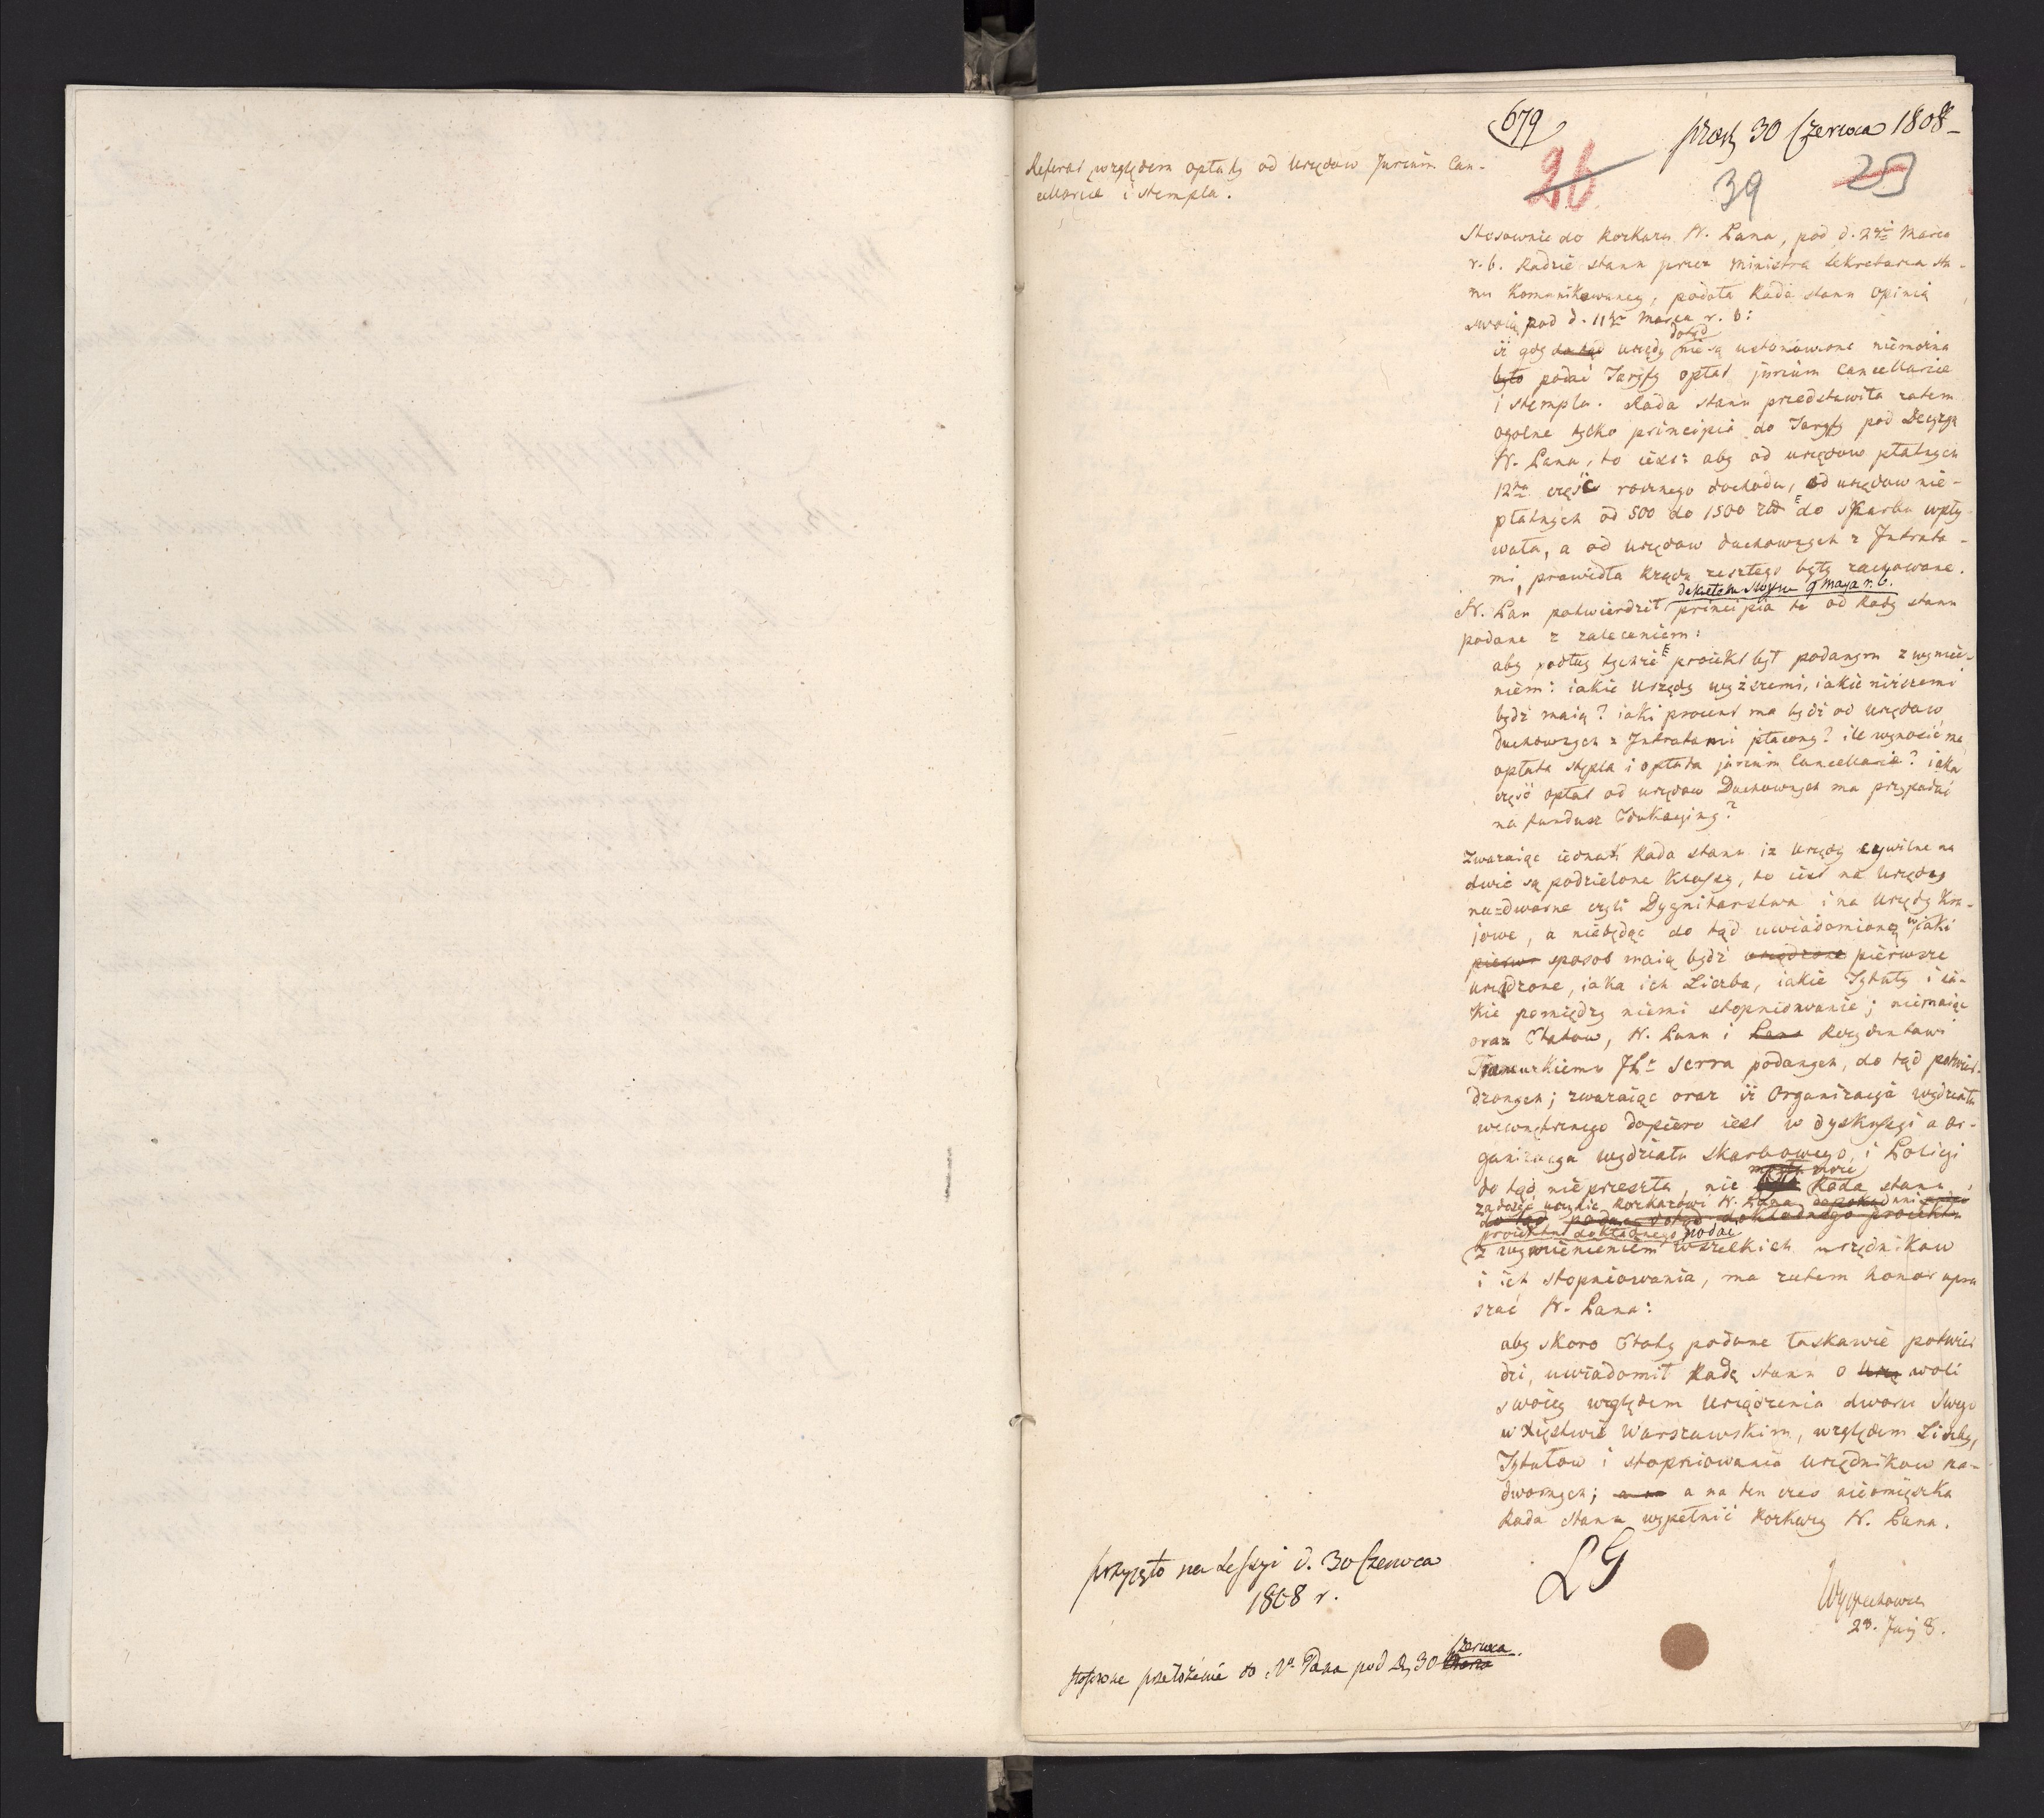 679
praes 30 Czerwca 1808
26
39
29
Referat względem opłaty od urzędow Jurium Can-
cellariae i stempla.
Stosownie do Rozkazu N. Pana, pod d. 2 Marca
r. b. Radzie stanu przez Ministra Sekretarza sta-
nu Komunikowaney, podała Rada stanu Opinią
swoią pod d. 11 Marca r. b:
iż gdy do tąd urzędy dotąd nie są ustanowione niemożna
było podać Taryfy opłat jurium cancellariae
i stempla. Rada stanu przedstawiła zatem
ogolne tylko principia do Taryfy pod Decyzyą
N. Pana, to iest: aby od urzędow płatnych
12ta część rocznego dochodu, od urzędow nie-
płatnych od 500 do 1500 zł do skarbu wpły-
wała, a od urzędow duchownych z Intrata-
mi, prawidła Rządu zeszłego były zachowane.
dekretem swym 9 Maja r. b.
N. Pan potwierdził principia te od Rady stanu
podane z zaleceniem:
aby podług tychże proiekt był podanym z wymie-
niem: iakie Urzędy wyższemi, iakie niższemi
bydź maią? iaki procent ma bydź od urzędow
duchownych z Intratami płacony? ile wynosić ma
opłata stępla i opłata jurium Cancellariae? iaka
część opłat od urzędow Duchownych ma przypadać
na fundusz Edukacyiny?
Zważaiąc iednak Rada stanu iż urzędy cywilne na
dwie są podzielone Klassy, to iest na urzędy
na-dworne czyli Dygnitarstwa i na urzędy Kra-
jowe, a niebędąc do tąd uwiadomioną w jaki
pierwsz sposob maią bydź urządzone pierwsze
urządzone, iaka ich Liczba, iakie Tytuły i ia-
kie pomiędzy niemi stopniowanie; niemaiąc
oraz Etatow, N. Panu i Pana Rezydentowi
Francuzkiemu JP. Serra podanych, do tąd potwier-
dzonych; zważaiąc oraz iż Organizacyia wydziału
wewnętrznego dopiero iest w dyskussyi a or-
ganizacya wydziału skarbowego, i Policyi
do tąd nie przeszła, nie może Rada stanu
zadosyć uczynić Rozkazowi N. Pana
do tąd dokładnego proiektu
proiektu dokładnego podać
z wymienieniem wszelkich urzędnikow
i ich stopniowania, ma zatem honor upra
szać N. Pana:
aby skoro Etaty podane łaskawie potwier
dzi, uwiadomił Radę stanu o urzą woli
swoiey względem urządzenia dworu swego
w Xięstwie Warszawskim, względem Liczby,
Tytułow i stopniowania urzędnikow na-
dwornych; a na a na ten czas nieomieszka
Rada Stanu wypełnić Rozkazy N. Pana.
LG
przyjęto na Sessyi d. 30 Czerwca
1808 r.
23. Junj 8.
Czerwca
stosowne przełożenie do N. Pana pod d. 30 Marca